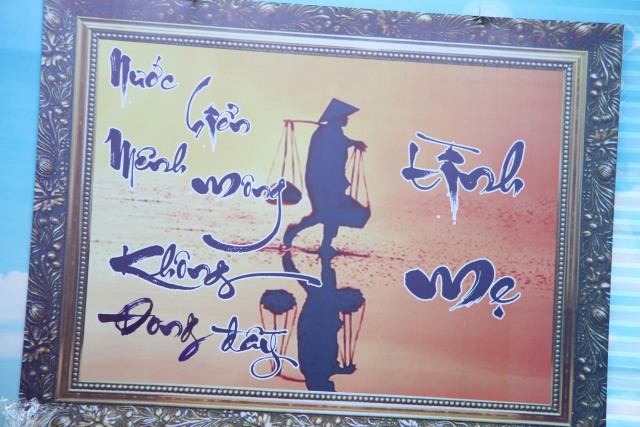 Nước
Giản
Mênh mông
Không
Đong đầy
Tình
Mẹ